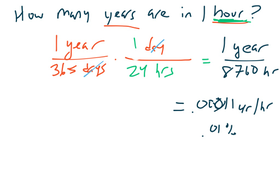 How many years are in 1 hour?
1 year / 365 days · 1 day / 24 hrs = 1 year / 8760 hr
= .00011 yr/hr
.01%